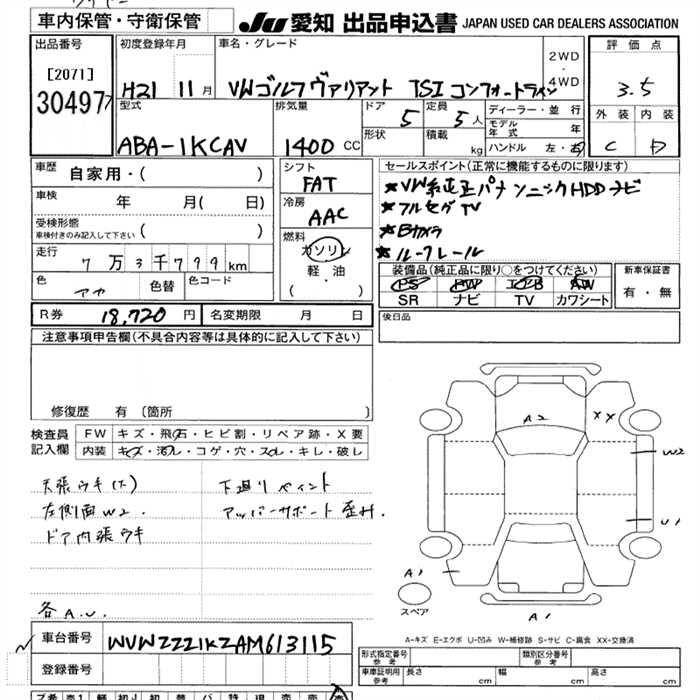 車内保管・守衛保管 JU 愛知 出品申込書 JAPAN USED CAR DEALERS ASSOCIATION
出品番号 初度登録年月 車名・グレード 2WD・4WD 評価点
[2071] 30497 H21 11月 VWゴルフヴァリアント TSIコンフォートライン 3.5
型式 排気量 ドア 定員 ディーラー・並行 外装 内装
ABA-1KCAV 1400 CC 5 5人 モデル年式 年 C D
形状 積載 kg ハンドル 左・右
車歴 自家用・( ) シフト FAT セールスポイント(正常に機能するものに限ります)
車検 年 月( 日) 冷房 AAC ★VW純正パナソニックHDDナビ
★フルセグTV
受検形態 車検付きのみ記入して下さい ( ) 燃料 ガソリン 軽油 ( ・ ) ★Bカメラ
★ルーフレール
走行 7万3千799km 装備品(純正品に限り○をつけてください) 新車保証書
色 アカ 色替 色コード PS PW AW 有・無
SR ナビ TV カワシート
R券 18,720円 名変期限 月 日 後日品
注意事項申告欄(不具合内容等は具体的に記入して下さい)
修復歴 有 〔箇所 〕
検査員記入欄 FW キズ・飛石・ヒビ割・リペア跡・X要
内装 キズ・汚れ・コゲ・穴・スレ・キレ・破レ
天張ウキ(大) 下廻りペイント
左側面W2. アッパーサポート歪み.
ドア内張ウキ
各A.U.
A2 XX W2 U1 A1 A1
スペア
A-キズ E-エクボ U-凹み W-補修跡 S-サビ C-腐食 XX-交換済
車台番号 WVWZZZ1KZAM613115
登録番号
形式指定番号 参考 類別区分番号 参考
車庫証明用 参考 長さ cm 幅 cm 高さ cm